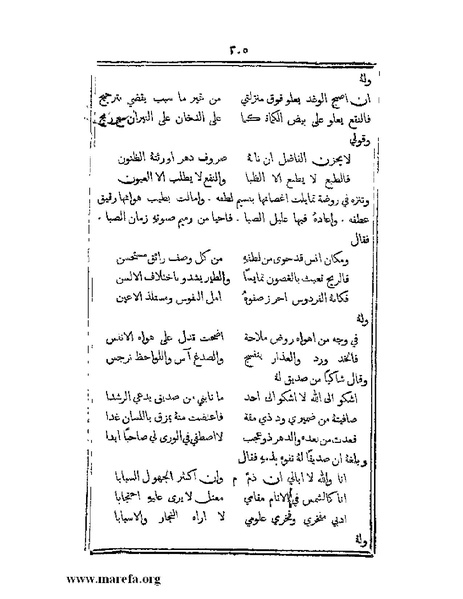 ٢٠٥
وله
ان اصبح الوغد يعلو فوق منزلتي من غير ما سبب يقضي بترجيح
فالنقع يعلو على بيض الكماة كما على الدخان على النيران
وقولي
لا يحزن الفاضل ان نابه صروف دهر اورثته الظنون
فالطبع لا يطبع الا الظبا والنقع لا يطلب الا العيون
وتنزه في روضة تمايلت اغصانها بنسيم لطفه . وامالت بطيب هوائها رقيق
عطفه . واعاده فيها عليل الصبا . فاحيا من رميم صوته زمان الصبا .
فقال
ومكان انس قد حوى من لطفه من كل وصف رائق مستحسن
فالريح تعبث بالغصون تمايسًا والطير يشدو باختلاف الالسن
فكانه الفردوس احرز صفوه امل النفوس ومستلذ الاعين
وله
في وجه من اهواه روض ملاحة اضحت تدل على هواه الانفس
فالخد ورد والعذار بنفسج والصدغ آس واللواحظ نرجس
وقال شاكيا من صديق له
اشكو الى الله لا اشكو الى احد ما نابني من صديق يدعي الرشدا
صافيته من ضميري ود ذي مقة فاعتضت منه يمزق باللسان غدا
فعدت من بعده والدهر ذو عجب لا اصطفي في الورى لي صاحبا ابدا
وبلغه ان صديقا له تفوه بذمه فقال
انا والله لا ابالي ان ذم م وان أكثر الجهول السبابا
انا كالشمس في الانام مقامي معتل لا يرى عليه احتجابا
ادبي مفخري وفخري علومي لا اراه النجار والانسابا
وله
www.marefa.org